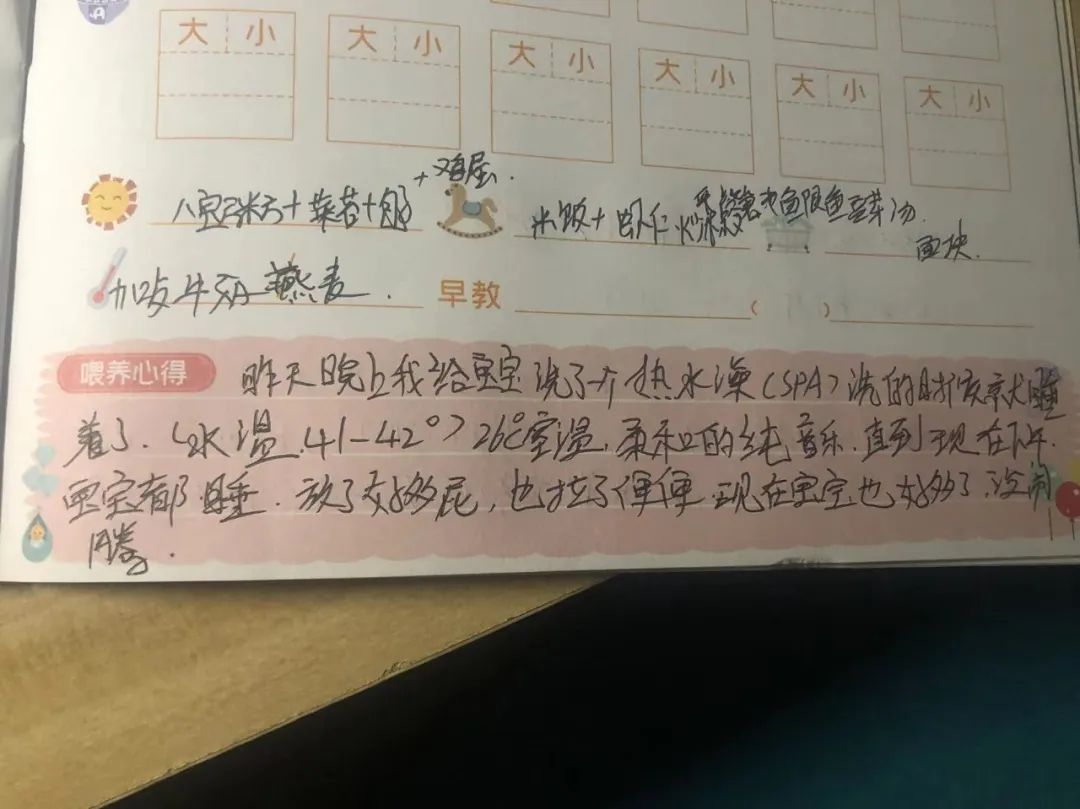 A
大 小 大 小 大 小 大 小 大 小 大 小
+鸡屋.
八宝粥+菜苔+
米饭+虾仁炒 面块.
加点牛奶燕麦. 早教 ( )
喂养心得 昨天晚上我给宝宝洗了个热水澡(SPA)洗的时候就睡
着了.(水温.41-42°)26℃室温,柔和的纯音乐.直到现在下午.
宝宝都睡.放了好多屁,也拉了便便.现在宝宝也好多了.没闹
腾.